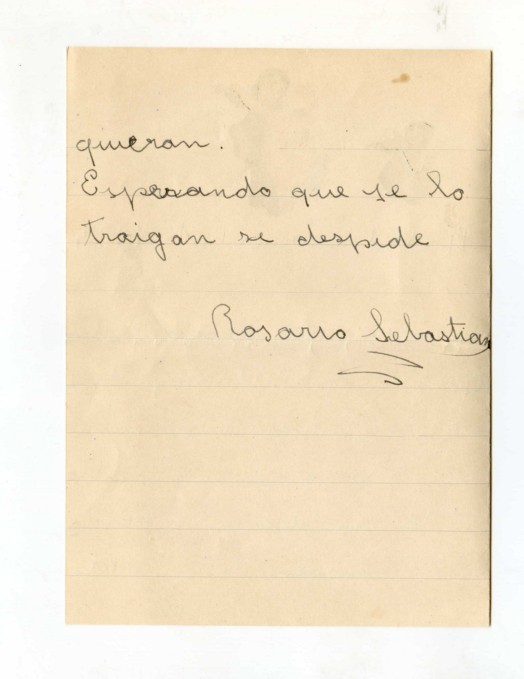 quieran.
Esperando que se lo
traigan se despide
Rosario Sebastian